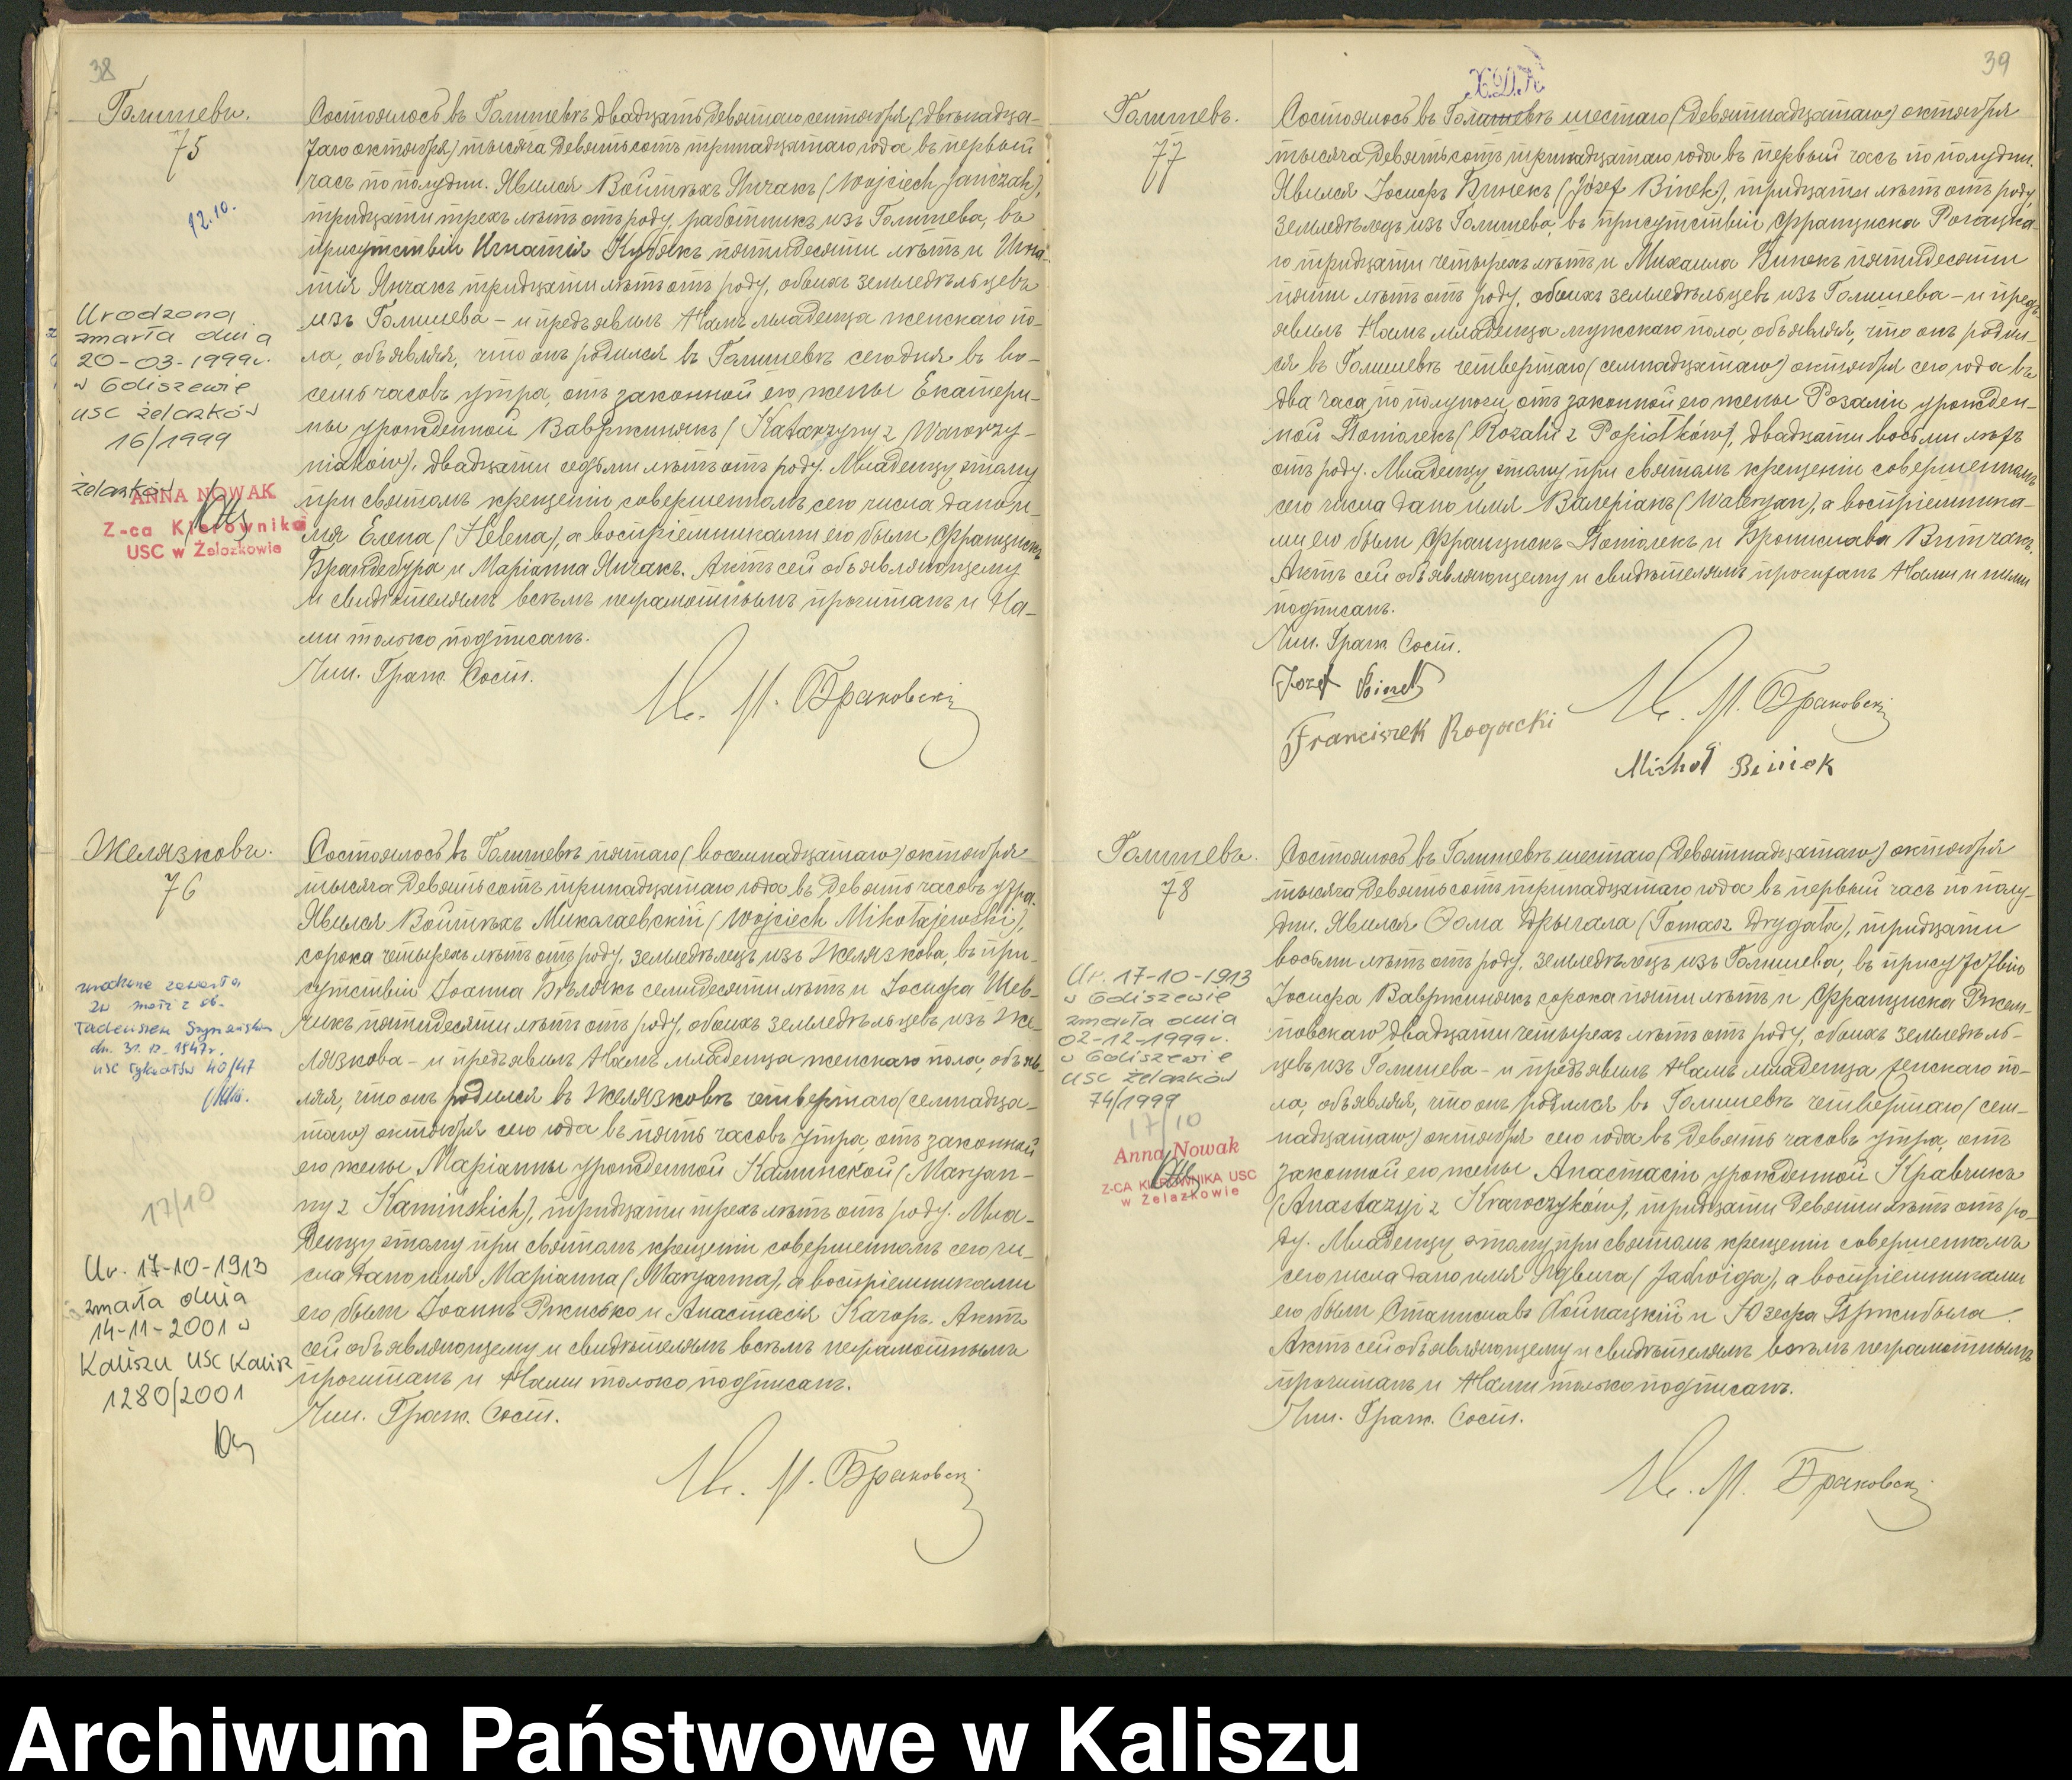 38
Голишевъ.
75
12.10.
Urodzona
zmarła dnia
20-03-1999r.
w Goliszewie
USC Żelazków
16/1999
Żelazków
ANNA NOWAK
Z-ca Kierownika
USC w Żelazkowie
Состоялось въ Голишевѣ двадцать девятаго сентября (двѣнадца-
таго октября) тысяча девятьсотъ тринадцатаго года въ первый
часъ по полудни. Явился Войтѣхъ Янчакъ (Wojciech Jańczak),
тридцати трехъ лѣтъ отъ роду, работникъ изъ Голишева, въ
присутствіи Игнатія Кубякъ пятидесяти лѣтъ и Игна-
тія Янчакъ тридцати лѣтъ отъ роду, обоихъ земледѣльцевъ
изъ Голишева – и предъявилъ Намъ младенца женскаго по-
ла, объявляя, что онъ родился въ Голишевѣ сегодня въ во-
семь часовъ утра, отъ законной его жены Екатери-
ны урожденной Вавржинякъ (Katarzyny z Wawrzy-
niaków), двадцати седьми лѣтъ отъ роду. Младенцу этому
при святомъ крещеніи совершенномъ сего числа дано и-
мя Елена (Helena), а воспріемниками его были Францискъ
Брандебура и Маріанна Янчакъ. Актъ сей объявляющему
и свидѣтелямъ всѣмъ неграмотнымъ прочитанъ и На-
ми только подписанъ.
Чин. Граж. Сост.
Кс. М. Браковскі
Желязковъ.
76
dn. 31.12.1947r.
40/47
17/10
Ur. 17-10-1913
zmarła dnia
14-11-2001 w
Kaliszu USC Kalisz
1280/2001
Состоялось въ Голишевѣ пятаго (восемнадцатаго) октября
тысяча девятьсотъ тринадцатаго года въ девять часовъ утра.
Явился Войтѣхъ Миколаевскій (Wojciech Mikołajewski),
сорока четырехъ лѣтъ отъ роду, земледѣлецъ изъ Желязкова, въ при-
сутствіи Іоанна Бѣлякъ семидесяти лѣтъ и Іосифа Шев-
чикъ пятидесяти лѣтъ отъ роду, обоихъ земледѣльцевъ изъ Же-
лязкова – и предъявилъ Намъ младенца женскаго пола, объяв-
ляя, что онъ родился въ Желязковѣ четвертаго (семнадца-
таго) октября сего года въ пять часовъ утра, отъ законной
его жены Маріанны урожденной Каминской (Maryan-
ny z Kamińskich), тридцати трехъ лѣтъ отъ роду. Мла-
денцу этому при святомъ крещеніи совершенномъ сего чи-
сла дано имя Маріанна (Maryanna), а воспріемниками
его были Іоаннъ Ржисько и Анастасія Качоръ. Актъ
сей объявляющему и свидѣтелямъ всѣмъ неграмотнымъ
прочитанъ и Нами только подписанъ.
Чин. Граж. Сост.
Кс. М. Браковскі
39
Голишевъ.
77
Состоялось въ Голишевѣ шестаго (девятнадцатаго) октября
тысяча девятьсотъ тринадцатаго года въ первый часъ по полудни.
Явился Іосифъ Бинекъ (Józef Binek), тридцати лѣтъ отъ роду,
земледѣлецъ изъ Голишева, въ присутствіи Франциска Рогацка-
го тридцати четырехъ лѣтъ и Михаила Бинекъ пятидесяти
пяти лѣтъ отъ роду, обоихъ земледѣльцевъ изъ Голишева – и предъ-
явилъ Намъ младенца мужскаго пола, объявляя, что онъ родил-
ся въ Голишевѣ четвертаго (семнадцатаго) октября сего года въ
два часа по полуночи, отъ законной его жены Розаліи урожден-
ной Попіолекъ (Rozalii z Popiołków), двадцати восьми лѣтъ
отъ роду. Младенцу этому при святомъ крещеніи совершенномъ
сего числа дано имя Валеріанъ (Waleryan), а воспріемника-
ми его были Францискъ Попіолекъ и Брониславa Витчакъ.
Актъ сей объявляющему и свидѣтелямъ прочитанъ Нами и ними
подписанъ.
Чин. Граж. Сост.
Józef Binek
Кс. М. Браковскі
Franciszek Rogacki
Michał Biniek
Голишевъ.
78
Ur. 17-10-1913
w Goliszewie
zmarła dnia
02-12-1999r.
w Goliszewie
USC Żelazków
74/1999
17/10
Anna Nowak
Z-CA KIEROWNIKA USC
w Żelazkowie
Состоялось въ Голишевѣ шестаго (девятнадцатаго) октября
тысяча девятьсотъ тринадцатаго года въ первый часъ по полу-
дни. Явился Ѳома Дрыгала (Tomasz Drygała), тридцати
восьми лѣтъ отъ роду, земледѣлецъ изъ Голишева, въ присутствіи
Іосифа Вавржинякъ сорока пяти лѣтъ и Франциска Ржем-
повскаго двадцати четырехъ лѣтъ отъ роду, обоихъ земледѣль-
цевъ изъ Голишева – и предъявилъ Намъ младенца женскаго по-
ла, объявляя, что онъ родился въ Голишевѣ четвертаго (сем-
надцатаго) октября сего года въ девять часовъ утра, отъ
законной его жены Анастасіи урожденной Кравчикъ
(Anastazyi z Krawczyków), тридцати девяти лѣтъ отъ ро-
ду. Младенцу этому при святомъ крещеніи совершенномъ
сего числа дано имя Ядвига (Jadwiga), а воспріемниками
его были Станиславъ Хойнацкій и Юзефа Пржибыла.
Актъ сей объявляющему и свидѣтелямъ всѣмъ неграмотнымъ
прочитанъ и Нами только подписанъ.
Чин. Граж. Сост.
Кс. М. Браковскі
Archiwum Państwowe w Kaliszu